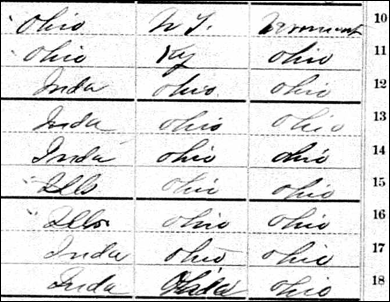 Ohio N Y. Vermont 10
Ohio Ky Ohio 11
Inda Ohio Ohio 12
Inda Ohio Ohio 13
Inda Ohio Ohio 14
Ills Ohio Ohio 15
Ills Ohio Ohio 16
Inda Ohio Ohio 17
Inda Ohio 18